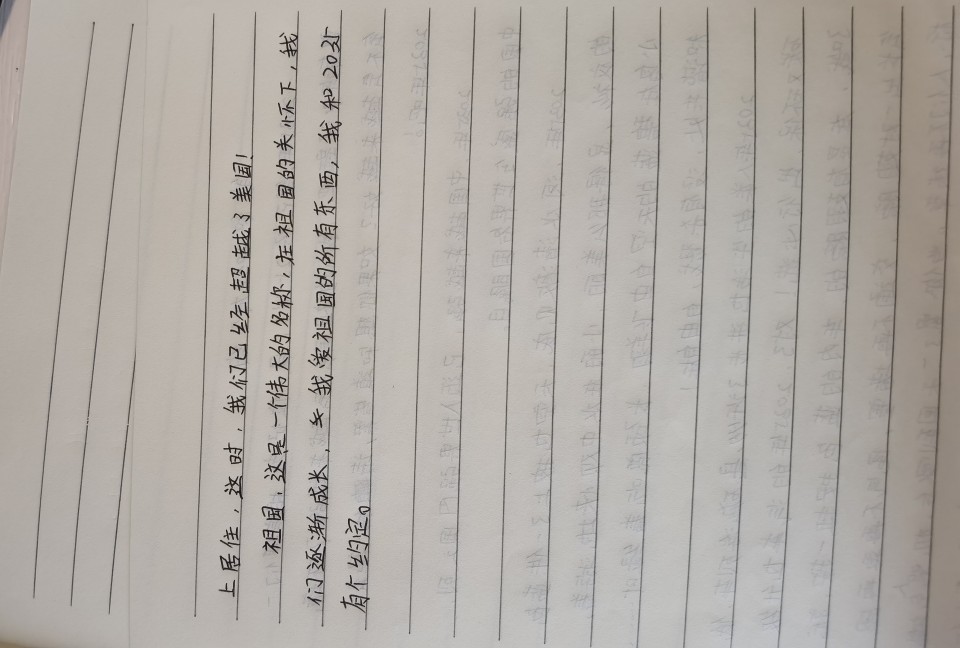 上居住，这时，我们已经超越了美国！
祖国，这是一个伟大的名称，在祖国的关怀下，我
们逐渐成长，我爱祖国的所有东西，我和2035
有个约定。